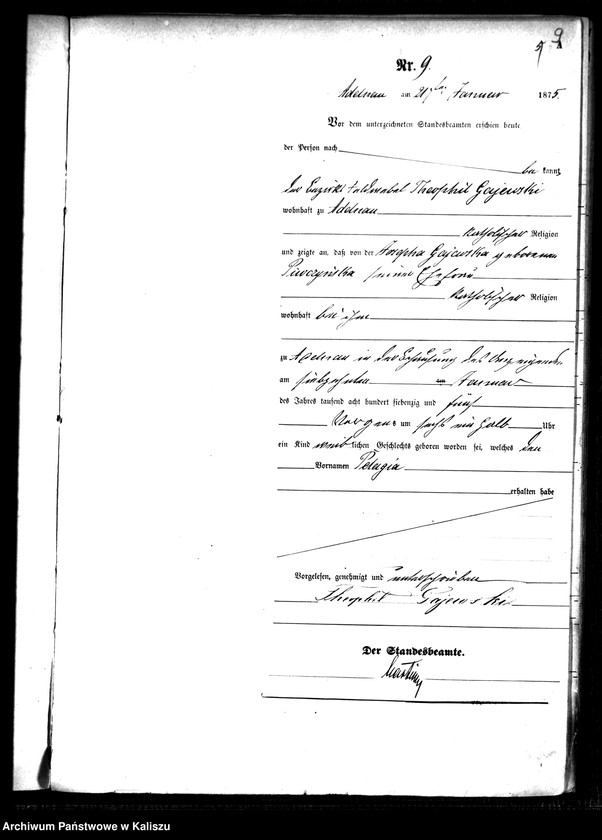 9
5
Nr. 9.
Adelnau am 21ten Januar 1875.
Vor dem unterzeichneten Standesbeamten erschien heute
der Person nach
be kannt,
der Bezirks Feldwebel Theophil Gajewski
wohnhaft zu Adelnau
katholischer Religion
und zeigte an, daß von der Josepha Gajewska geborenen
seiner Ehefrau
katholischer Religion
wohnhaft bei ihm
zu Adelnau in der Behausung des
am siebzehnten Januar
des Jahres tausend acht hundert siebenzig und fünf
Morgens um sechs ein halb Uhr
ein Kind weib lichen Geschlechts geboren worden sei, welches den
Vornamen Pelagia
erhalten habe
Vorgelesen, genehmigt und unterschrieben
Theophil Gajewski
Der Standesbeamte.
Archiwum Państwowe w Kaliszu